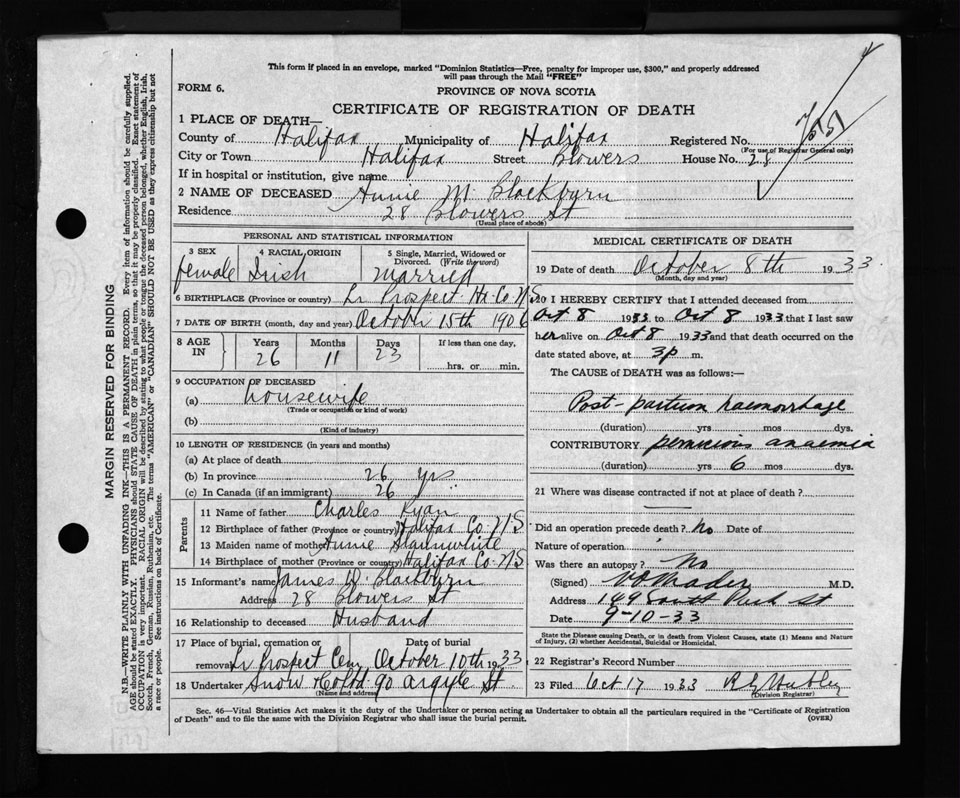 This form if placed in an envelope, marked "Dominion Statistics—Free, penalty for improper use, $300," and properly addressed
will pass through the Mail "FREE"
FORM 6.
PROVINCE OF NOVA SCOTIA
CERTIFICATE OF REGISTRATION OF DEATH
1 PLACE OF DEATH—
County of Halifax Municipality of Halifax Registered No.
(For use of Registrar General only)
City or Town Halifax Street Blowers House No. 28
If in hospital or institution, give name
2 NAME OF DECEASED Annie M Blackburn
Residence 28 Blowers St
(Usual place of abode)
PERSONAL AND STATISTICAL INFORMATION
3 SEX 4 RACIAL ORIGIN 5 Single, Married, Widowed or
Divorced. (Write the word)
female Irish Married
6 BIRTHPLACE (Province or country) Lr Prospect Hx. Co. N.S.
7 DATE OF BIRTH (month, day and year) October 15th 1906
8 AGE IN Years Months Days If less than one day,
26 11 23 hrs. or min.
9 OCCUPATION OF DECEASED
(a) housewife
(Trade or occupation or kind of work)
(b)
(Kind of industry)
10 LENGTH OF RESIDENCE (in years and months)
(a) At place of death
(b) In province 26 yrs.
(c) In Canada (if an immigrant) 26 "
Parents
11 Name of father Charles Ryan
12 Birthplace of father (Province or country) Halifax Co. N.S
13 Maiden name of mother Annie Slaunwhite
14 Birthplace of mother (Province or country) Halifax Co. N.S
15 Informant's name James W. Blackburn
Address 28 Blowers St
16 Relationship to deceased Husband
17 Place of burial, cremation or Date of burial
removal Lr Prospect Cem October 10th 1933
18 Undertaker Snow & Co Ltd 90 Argyle St.
(Name and address)
MEDICAL CERTIFICATE OF DEATH
19 Date of death October 8th 1933
(Month, day and year)
20 I HEREBY CERTIFY that I attended deceased from
Oct 8 1933 to Oct 8 1933 that I last saw
her alive on Oct 8 1933 and that death occurred on the
date stated above, at 3 p m.
The CAUSE of DEATH was as follows:—
Post-partum haemorrhage
(duration) yrs mos dys.
CONTRIBUTORY pernicious anaemia
(duration) yrs 6 mos dys.
21 Where was disease contracted if not at place of death?
Did an operation precede death? No Date of
Nature of operation
Was there an autopsy? No
(Signed) Mader M.D.
Address 149 South Park St
Date 9-10-33
State the Disease causing Death, or in death from Violent Causes, state (1) Means and Nature
of Injury, (2) whether Accidental, Suicidal or Homicidal.
22 Registrar's Record Number
23 Filed Oct 17 1933
(Division Registrar)
Sec. 46—Vital Statistics Act makes it the duty of the Undertaker or person acting as Undertaker to obtain all the particulars required in the "Certificate of Registration
of Death" and to file the same with the Division Registrar who shall issue the burial permit. (OVER)
MARGIN RESERVED FOR BINDING
N.B—WRITE PLAINLY WITH UNFADING INK—THIS IS A PERMANENT RECORD. Every item of information should be carefully supplied.
AGE should be stated EXACTLY. PHYSICIANS should STATE CAUSE OF DEATH in plain terms, so that it may be properly classified. Exact statement of
OCCUPATION is very important. RACIAL ORIGIN will be described by stating to what people or tongue the deceased person belonged, whether English, Irish,
Scotch, French, German, Russian, Ruthenian, etc. The terms "AMERICAN" or "CANADIAN" SHOULD NOT BE USED as they express citizenship but not
a race or people. See instructions on back of Certificate.